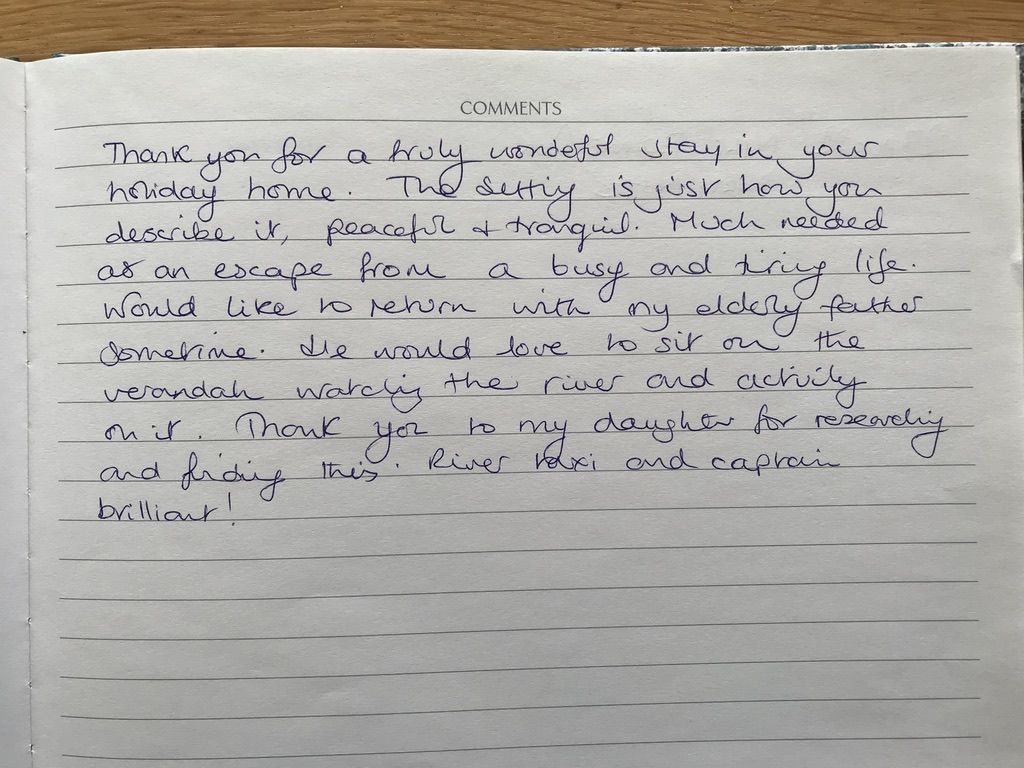 COMMENTS
Thank you for a truly wondeful stay in your
holiday home. The setting is just how you
describe it, peaceful & tranquil. Much needed
as an escape from a busy and tiring life.
Would like to return with my elderly father
sometime. He would love to sit on the
verandah watching the river and activity
on it. Thank you to my daughter for researching
and finding this. River taxi and captain
brilliant!